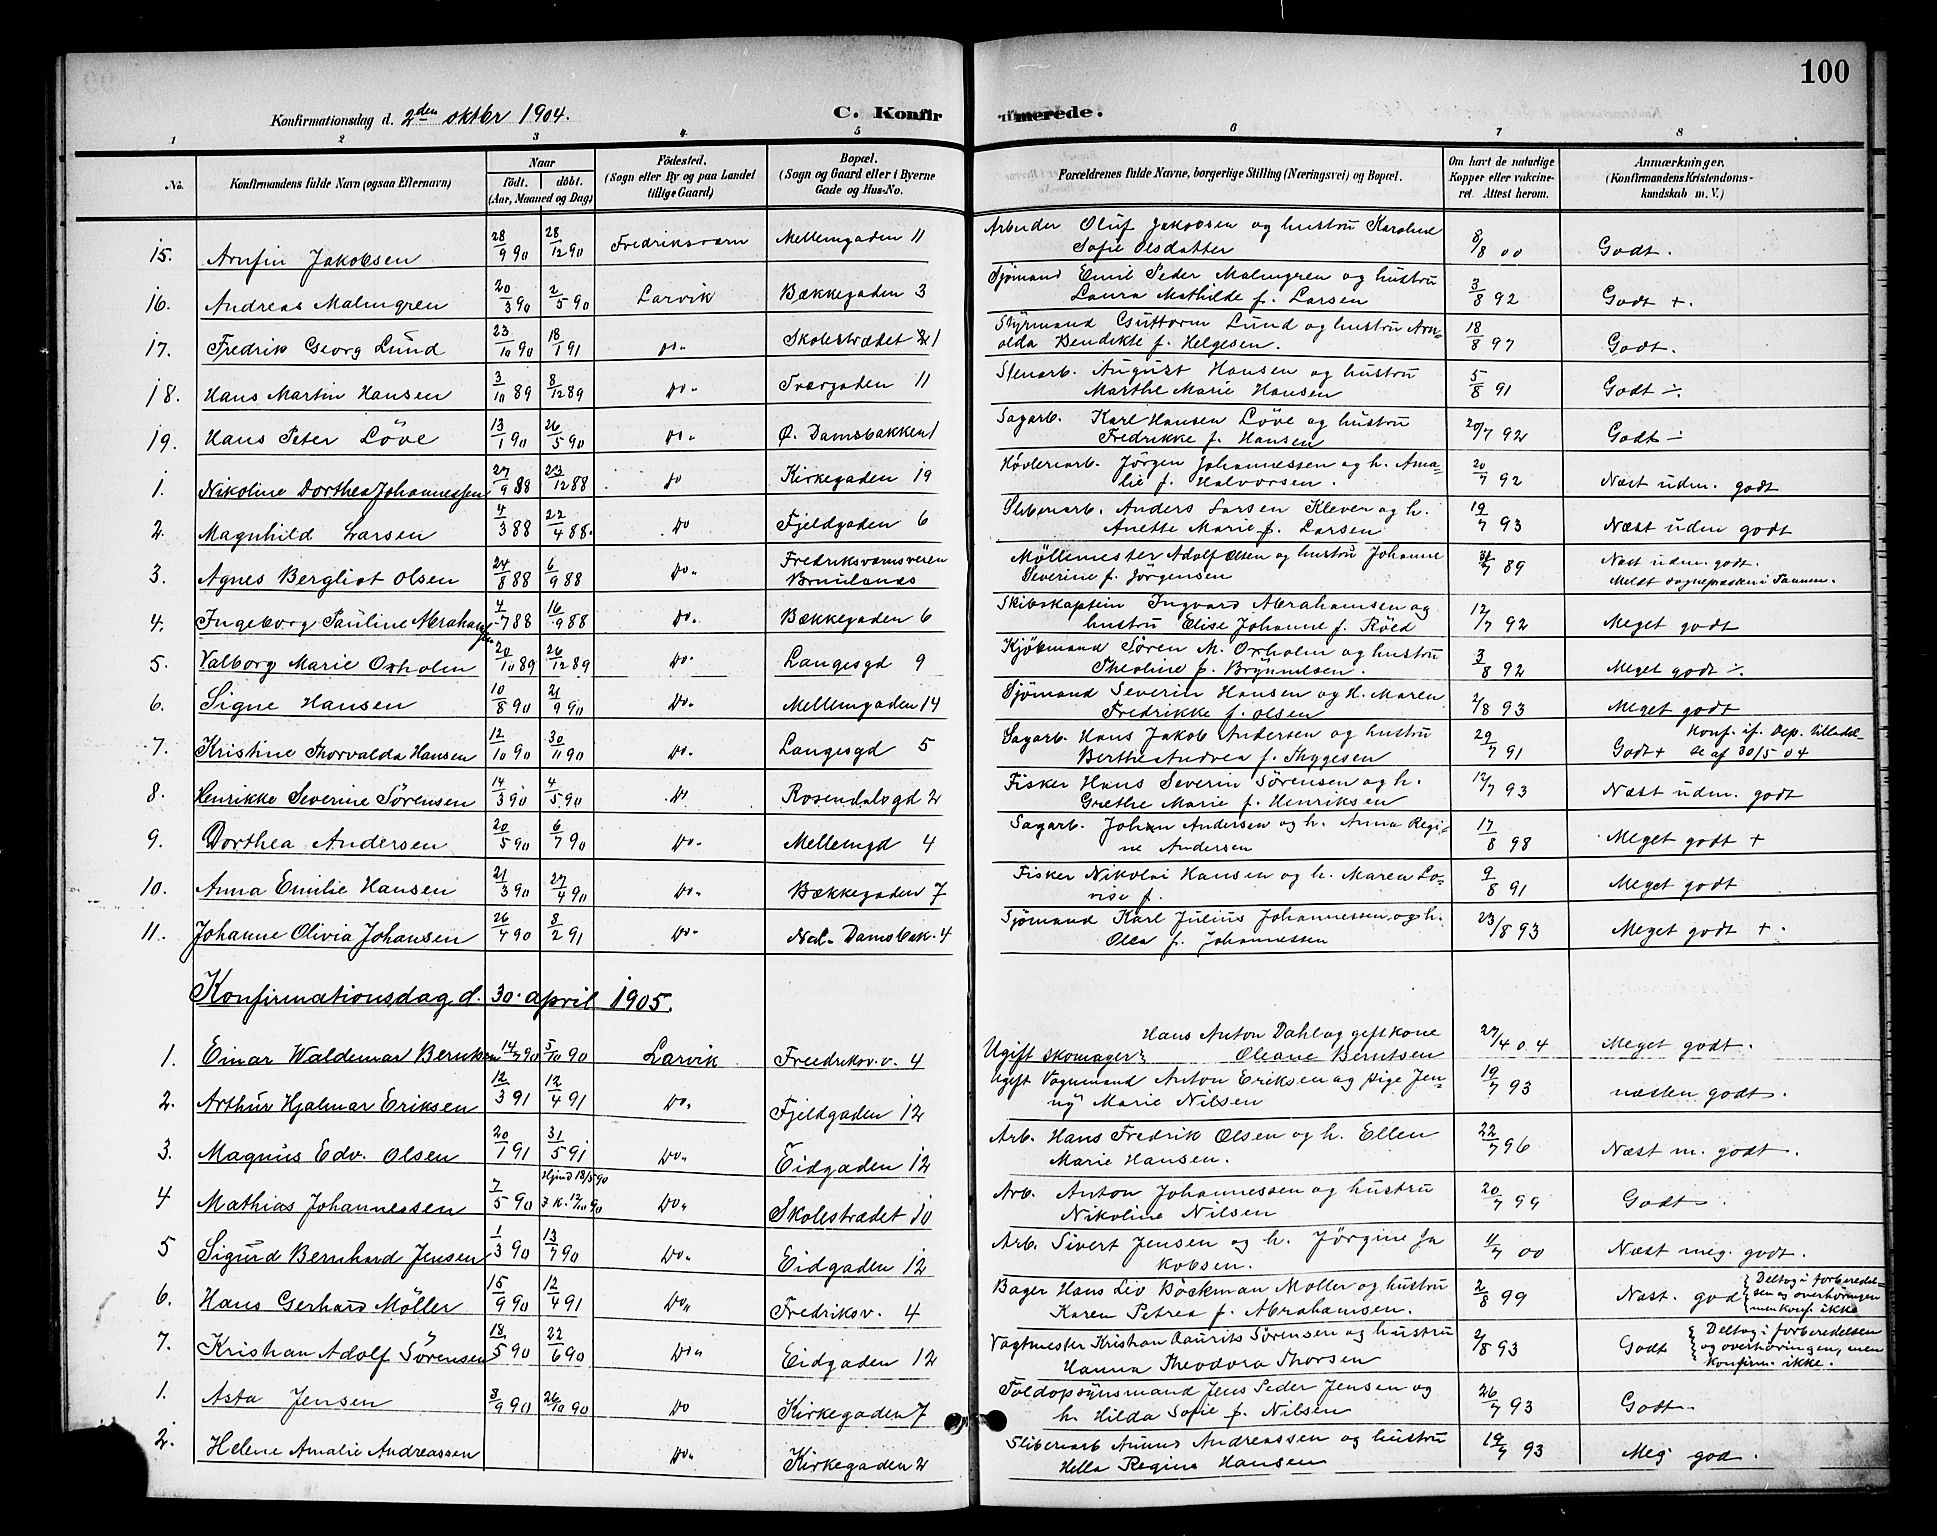 100
Konfirmationsdag d. 2den oktbr 1904. C. Konfirmerede.
1 2 3 4 5 6 7 8
No. Konfirmandens fulde Navn (ogsaa Efternavn) Naar födt. döbt. (Aar, Maaned og Dag) Födested. (Sogn eller By og paa Landet tillige Gaard) Bopæl. (Sogn og Gaard eller i Byerne Gade og Hus-No. Forældrenes fulde Navne, borgerlige Stilling (Næringsvei) og Bopæl. Om havt de naturlige Kopper eller vakcineret. Attest herom. Anmærkninger. (Konfirmandens Kristendomskundskab m. V.)
15. Arnfin Jakobsen 28/9 90 28/12 90 Fredriksværn Mellemgaden 11 Arbeider Oluf Jakobsen og hustru Karoline Sofie Olsdatter 8/8 00 Godt.
16. Andreas Malmgren 20/3 90 2/5 90 Larvik Bækkegaden 3 Sjømand Emil Peder Malmgren og hustru Laura Mathilde f. Larsen 3/8 92 Godt +.
17. Fredrik Georg Lund 23/10 90 18/1 91 Do. Skolestrædet 21 Styrmand Guttorm Lund og hustru Arnolda Bendikte f. Helgesen. 18/8 97 Godt.
18. Hans Martin Hansen 3/10 89 8/12 89 Do. Tværgaden 11 Stenarb. August Hansen og hustru Marthe Marie Hansen 5/8 91 Godt ÷.
19. Hans Peter Löve 13/1 90 26/5 90 Do. Ø. Damsbakken 1 Sagarb. Karl Hansen Löve og hustru Fredrikke f. Hansen 20/7 92 Godt ÷
1. Nikoline Dorthea Johannessen 27/9 88 23/12 88 Do Kirkegaden 19 Høvleriarb. Jörgen Johannessen og h. Amalie f. Halvorsen. 20/7 92 Næst udm. godt
2. Magnhild Larsen 4/3 88 22/4 88. Do Fjeldgaden 6 Sliberiarb. Anders Larsen Klever og h. Anette Marie f. Larsen 19/7 93 Næst udm godt
3. Agnes Bergliot Olsen 24/8 88 6/9 88 Do. Fredriksværnsveien Brunlanæs Møllemester Adolf Olsen og hustru Johanne Severine f. Jörgensen 31/7 89 Næst udm. godt. Meldt sognepresten i Tanum.
4. Ingeborg Pauline Abrahamsen 4/7 88 16/9 88 Do. Bækkegaden 6 Skibskaptein Ingvard Abrahamsen og hustru Elise Johanne f. Röed 12/7 92 Meget godt
5. Valborg Marie Oxholm 20/10 89 26/12 89 Do. Langesgd 9 Kjöbmand Sören M. Oxholm og hustru Theoline f. Brynnilsen. 3/8 92 Meget godt ÷.
6. Signe Hansen 10/8 90 21/9 90 Do. Mellemgaden 14 Sjømand Severin Hansen og H. Maren Fredrikke f. Olsen 2/8 93 Meget godt
7. Kristine Thorvalda Hansen 12/10 90 30/11 90 Do. Langesgd 5 Sagarb. Hans Jakob Andersen og hustru Berthe Andrea f. Thygesen 29/7 91 Godt + Konf. if. Dep. tilladelse af 30/5 04
8. Henrikke Severine Sörensen 14/3 90 4/5 90 Do Rosendalsgd 2 Fisker Hans Severin Sörensen og h. Grethe Marie f. Henriksen 12/7 93 Næst udm. godt
9. Dorthea Andersen 20/5 90 6/7 90 Do. Mellemgd 4 Sagarb. Johan Andersen og h. Anna Regine Andersen 17/8 98 Meget godt +
10. Anna Emilie Hansen 21/3 90 27/4 90 Do. Bækkegaden 7 Fisker Nikolai Hansen og h. Maren Lovise f. 9/8 91 Meget godt
11. Johanne Olivia Johansen 26/4 90 8/2 91 Do. Nal. Damsbak. 4 Sjømand Karl Julius Johannessen og h. Olea f. Johannessen 23/8 93 Meget godt +.
Konfirmationsdag d. 30. april 1905.
1. Einar Waldemar Berntsen 14/7 90 5/10 90 Larvik Fredriksv. v. 4 Ugift skomager Hans Anton Dahl og gift kone Oleane Berntsen 27/4 04 Meget godt.
2. Arthur Hjalmar Eriksen 12/3 91 12/4 91 Do. Fjeldgaden 12 Ugift Vognmand Anton Eriksen og pige Jenny Marie Nilsen 19/7 93 næsten godt.
3. Magnus Edv. Olsen 20/1 91 31/5 91 Do. Eidgaden 12 Arb. Hans Fredrik Olsen og h. Ellen Marie Hansen. 22/7 96 Næst m. godt.
4 Mathias Johannessen 7/5 90 Hjmd 18/5 90 I K. 12/10 90 Do. Skolestrædet 10 Arb. Anton Johannessen og hustru Nikoline Nilsen 20/7 99 Godt.
5 Sigurd Bernhard Jensen 1/3 90 13/7 90 Do. Eidgaden 12 Arb. Sivert Jensen og h. Jörgine Jakobsen. 4/7 00 Næst meg. godt.
6. Hans Gerhard Möller 15/9 90 12/4 91 Do. Fredriksv. 4 Bager Hans Liv Böckman Moller og hustru Karen Petrea f. Abrahamsen. 2/8 99 Næst. god Deltog i forberedelsen og overhöringen men konf. ikke
7. Kristian Adolf Sörensen 18/5 90 22/6 90 Do. Eidgaden 12 Vagtmester Kristian Laurits Sörensen og hustru Hanna Theodora Thorsen 2/8 93 Godt Deltog i forberedelsen og overhöringen, men konfirm. ikke.
1. Asta Jensen 3/9 90 26/10 90 Do Kirkegaden 7 Toldopsynsmand Jens Peder Jensen og h. Hilda Sofie f. Nilsen 26/7 93 Godt
2. Helene Amalie Andreassen Do. Kirkegaden 2 Sliberiarb Andreassen og hustru Hella Regine Hansen 19/7 93 Meg god.